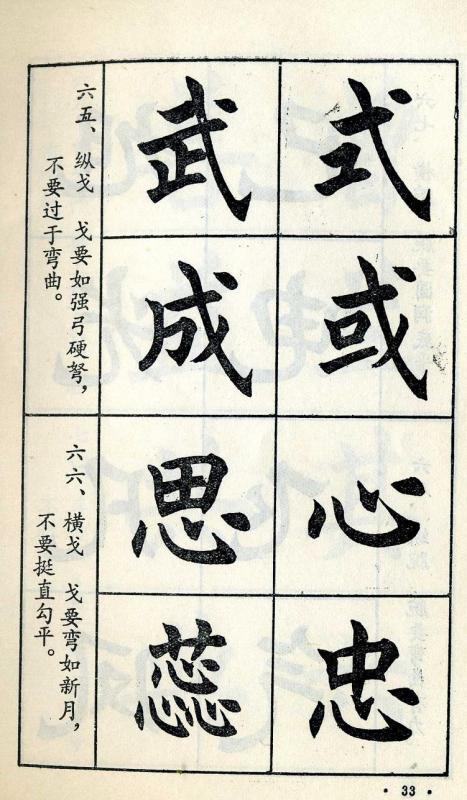 式或
武成
六五、纵戈　戈要如强弓硬弩，
不要过于弯曲。
心忠
思蕊
六六、横戈　戈要弯如新月，
不要挺直勾平。
· 33 ·